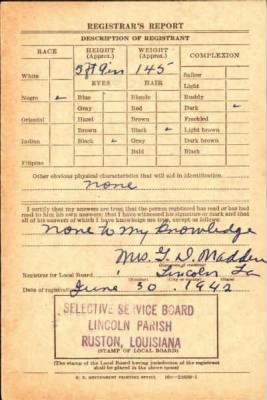 REGISTRAR'S REPORT
DESCRIPTION OF REGISTRANT
RACE HEIGHT (Approx.) WEIGHT (Approx.) COMPLEXION
White 5 ft 9 in 145 Sallow
EYES HAIR Light
Negro ✓ Blue Blonde Ruddy
Gray Red Dark ✓
Oriental Hazel Brown Freckled
Brown Black ✓ Light brown
Indian Black ✓ Gray Dark brown
Bald Black
Filipino
Other obvious physical characteristics that will aid in identification
None
I certify that my answers are true; that the person registered has read or has had
read to him his own answers; that I have witnessed his signature or mark and that
all of his answers of which I have knowledge are true, except as follows:
None to my Knowledge
Mrs. G. D. Madden
Registrar for Local Board Lincoln La
Date of registration June 30, 1942
SELECTIVE SERVICE BOARD
LINCOLN PARISH
RUSTON, LOUISIANA
(STAMP OF LOCAL BOARD)
(The stamp of the Local Board having jurisdiction of the registrant
shall be placed in the above space)
U. S. GOVERNMENT PRINTING OFFICE